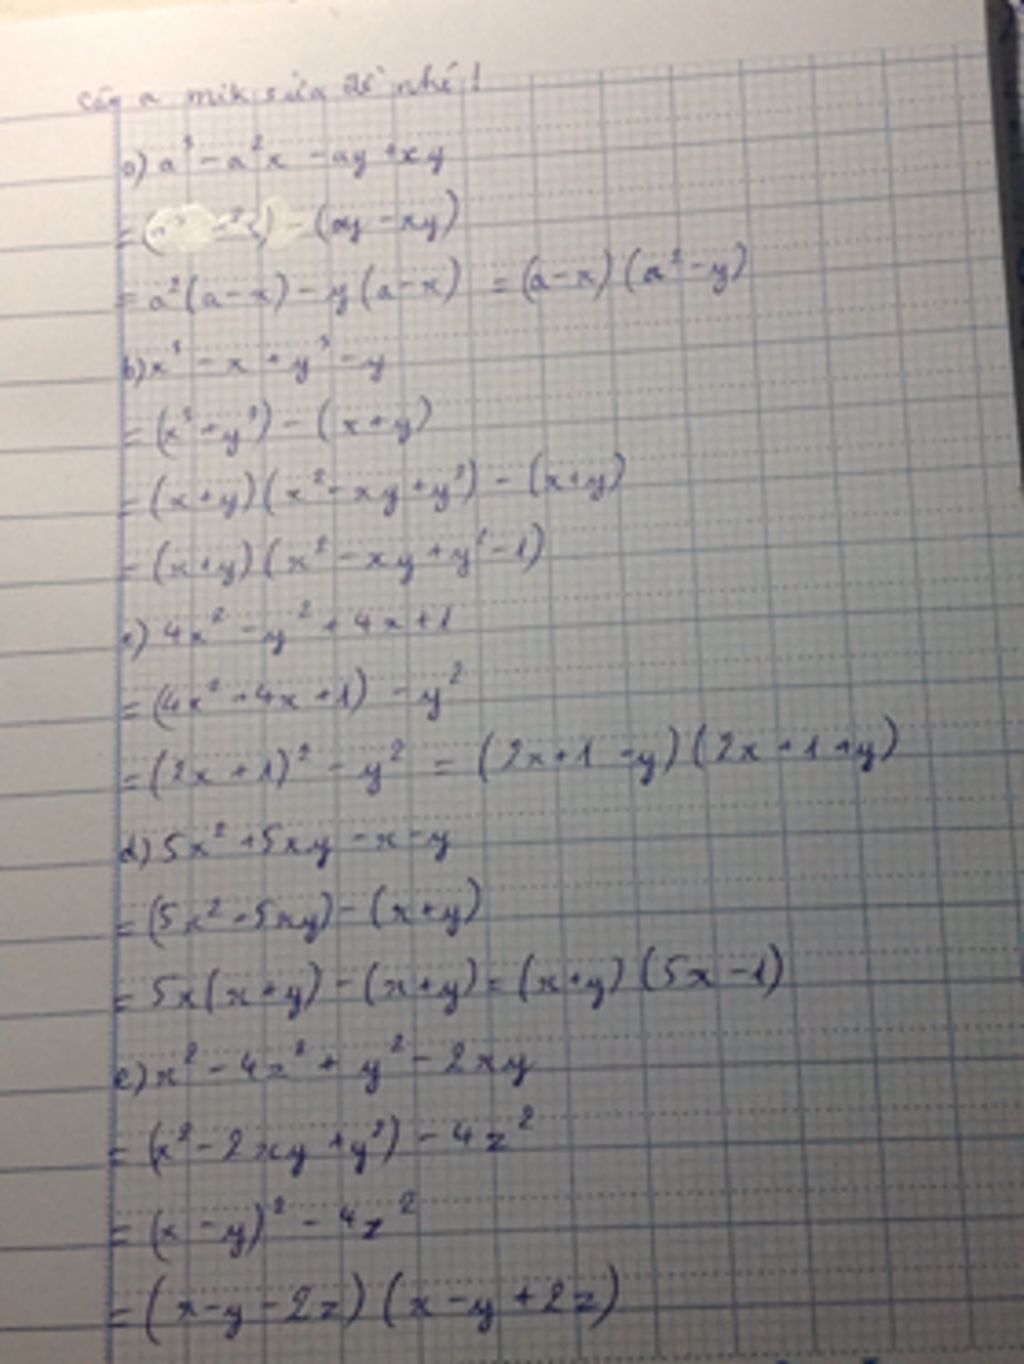 Câu a mik sửa đề nhé!
a) a³ - a²x - ay + xy
= (a³ - a²x) - (ay - xy)
= a²(a-x) - y(a-x) = (a-x)(a²-y)
b) x³ - x + y³ - y
= (x³ + y³) - (x+y)
= (x+y)(x² - xy + y²) - (x+y)
= (x+y)(x² - xy + y² - 1)
c) 4x² - y² + 4x + 1
= (4x² + 4x + 1) - y²
= (2x + 1)² - y² = (2x+1 - y)(2x + 1 + y)
d) 5x² + 5xy - x - y
= (5x² + 5xy) - (x+y)
= 5x(x+y) - (x+y) = (x+y)(5x - 1)
e) x² - 4z² + y² - 2xy
= (x² - 2xy + y²) - 4z²
= (x - y)² - 4z²
= (x-y-2z)(x-y+2z)